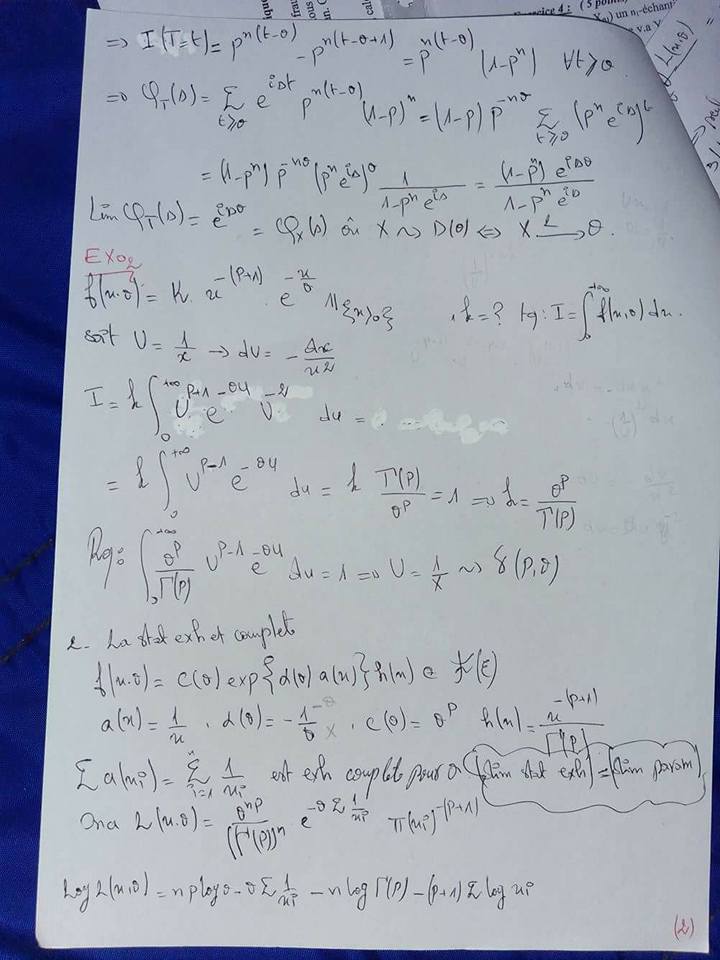 ique
frau
ous
on. C
cal
Exercice 4 : (5 point
un n-échant
e v.a Y
=> I(T=t) = p^{n(t-θ)} - p^{n(t-θ+1)} = p^{n(t-θ)} (1-p^n) ∀t≥θ
=> φ_T(s) = Σ_{t≥θ} e^{ist} p^{n(t-θ)} (1-p)^n = (1-p) p^{-nθ} Σ_{t≥θ} (p^n e^{is})^t
= (1-p^n) p^{-nθ} (p^n e^{is})^θ 1/(1-p^n e^{is}) = (1-p^n) e^{isθ}/(1-p^n e^{is})
Lim φ_T(s) = e^{isθ} = φ_X(s) où X ~> D(θ) <=> X →^L θ.
EXO2
f(x.θ) = K x^{-(p+1)} e^{-x/θ} 1l_{x>0} , k=? tq: I = ∫_0^{+∞} f(x,θ) dx.
soit U = 1/x → dU = - dx/x²
I = k ∫_0^{+∞} U^{p+1} e^{-θu} U^{-2} du =
= k ∫_0^{+∞} U^{p-1} e^{-θu} du = k Γ(p)/θ^p = 1 => k = θ^p/Γ(p)
Rq: ∫_0^{+∞} θ^p/Γ(p) U^{p-1} e^{-θu} du = 1 => U = 1/X ~> γ(p,θ)
2- La stat exh et complet
f(x.θ) = C(θ) exp{α(θ) a(x)} h(x) ∈ F(E)
a(x) = 1/x , α(θ) = -1/θ -θ x , c(θ) = θ^p h(x) = x^{-(p+1)}/Γ(p)
Σ a(xi) = Σ_{i=1}^n 1/xi est exh complet pour θ (dim stat exh) = (dim param)
On a L(x.θ) = θ^{np}/(Γ(p))^n e^{-θ Σ 1/xi} Π(xi)^{-(p+1)}
Log L(x,θ) = n p log θ - θ Σ 1/xi - n log Γ(p) - (p+1) Σ log xi
(2)